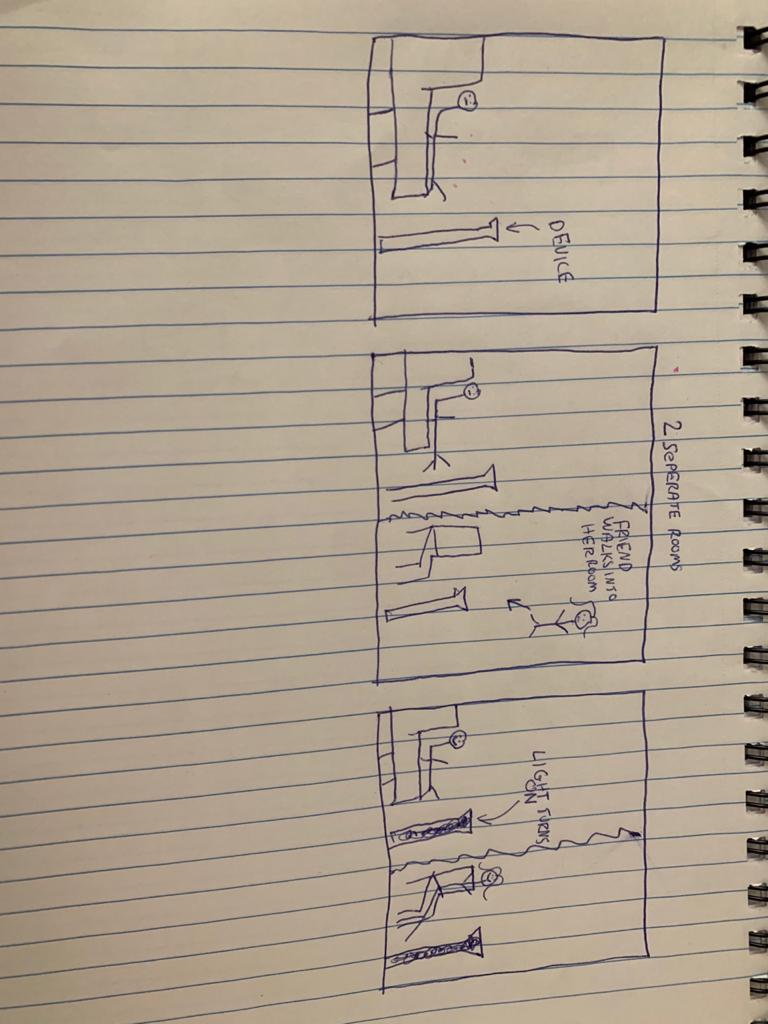 DEVICE
2 SEPERATE ROOMS
FRIEND
WALKS INTO
HER ROOM
LIGHT TURNS
ON